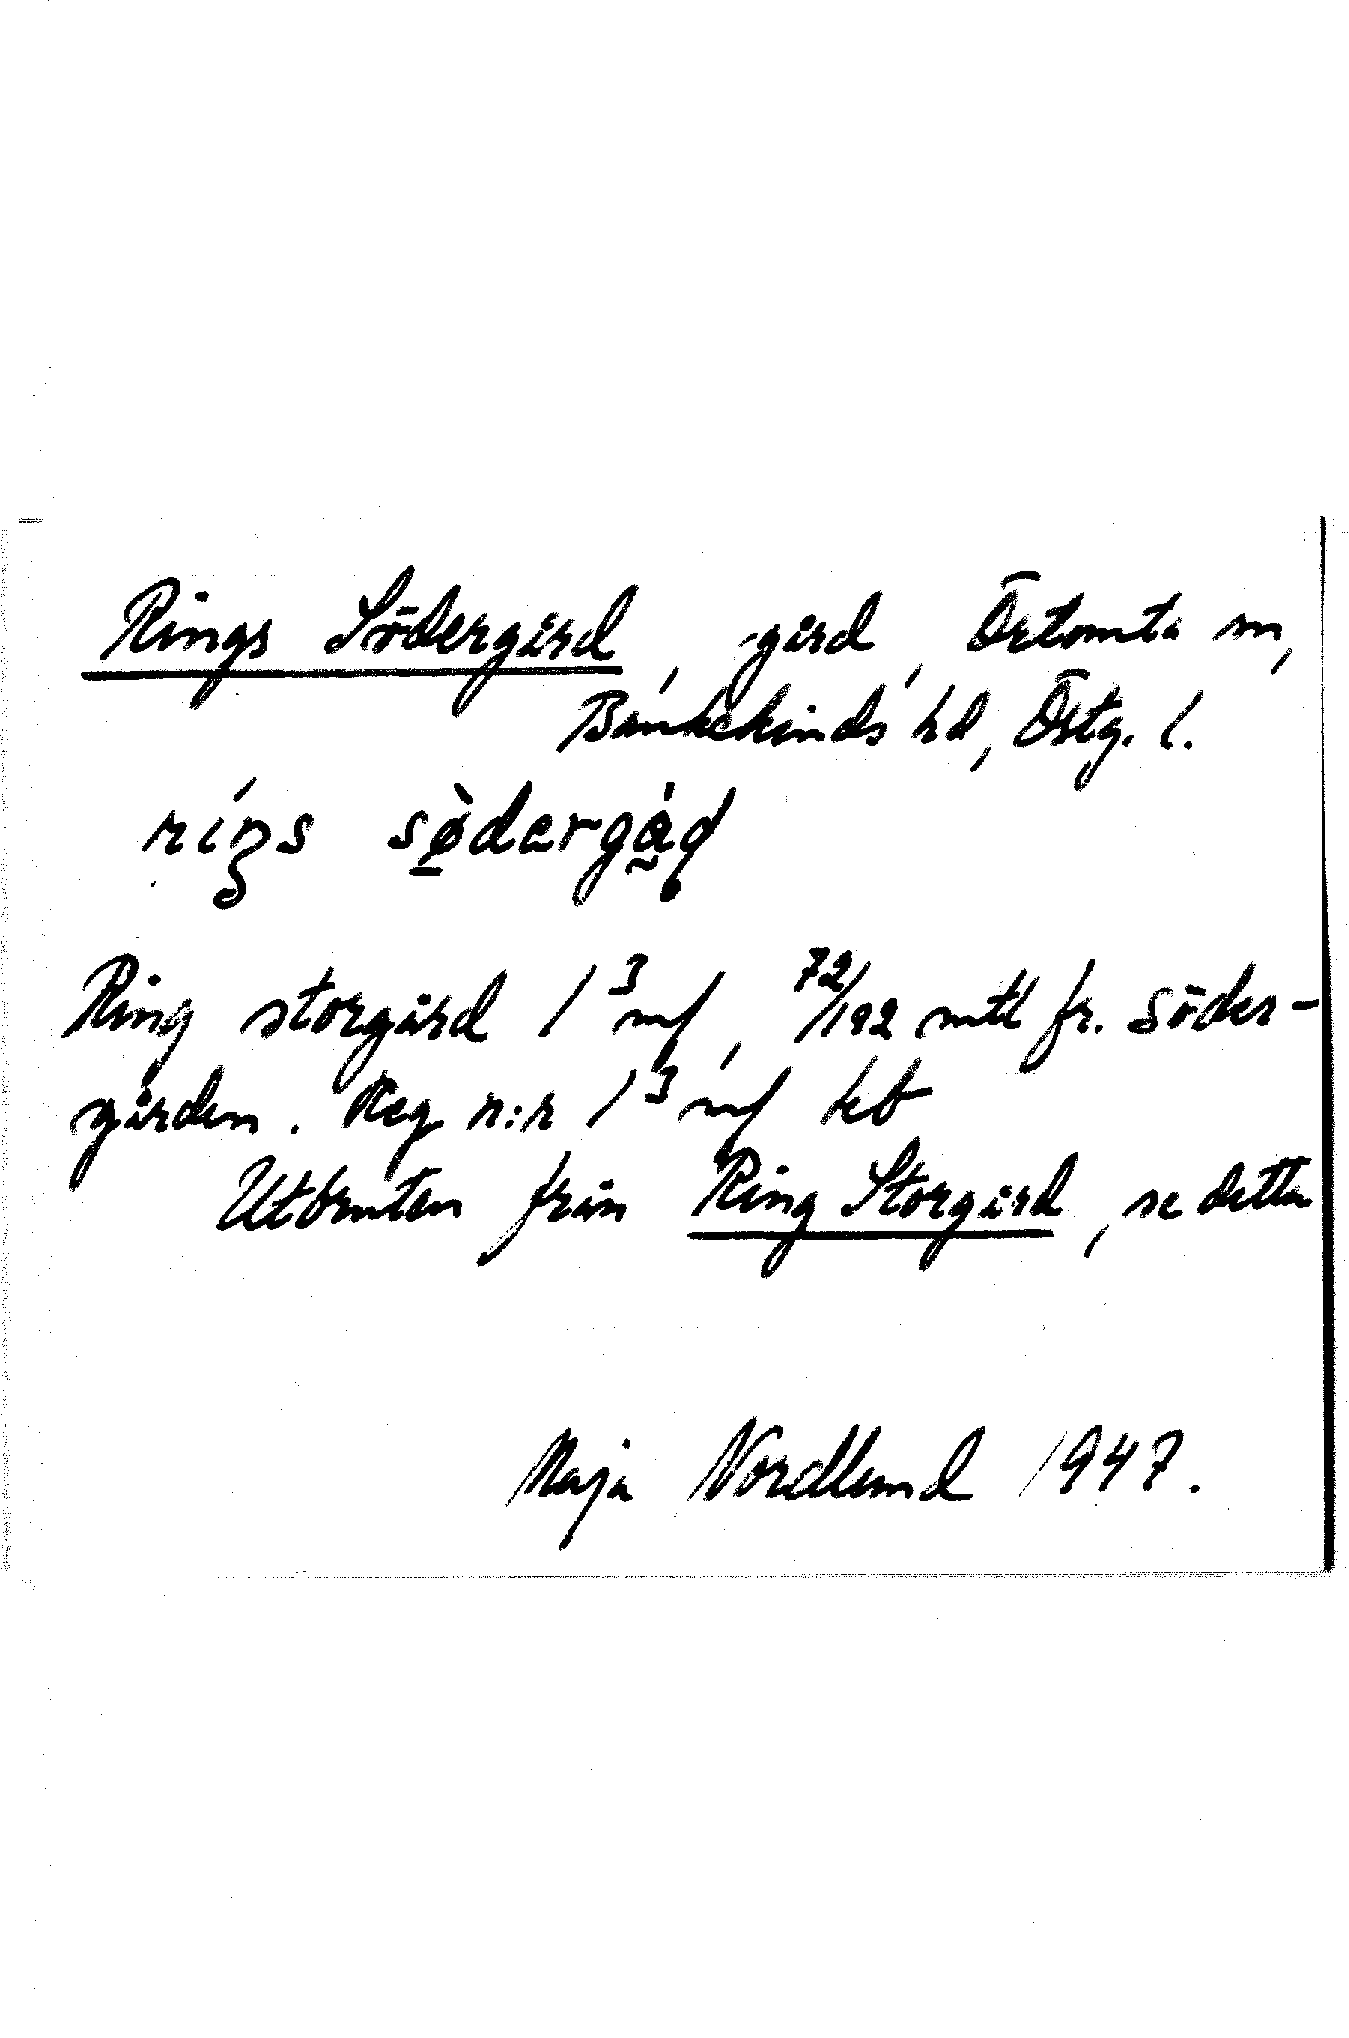 Rings Södergård, gård, Örtomta sn,
Bankekinds hd, Östg. l.
ríŋs sø̀dərgåḍ
Ring storgård 1³ mf, 72/192 mtl fr. Söder-
gården. Reg n:r 1³ mf kb
Utbruten från Ring Storgård, se detta
Maja Nordlund 1947.